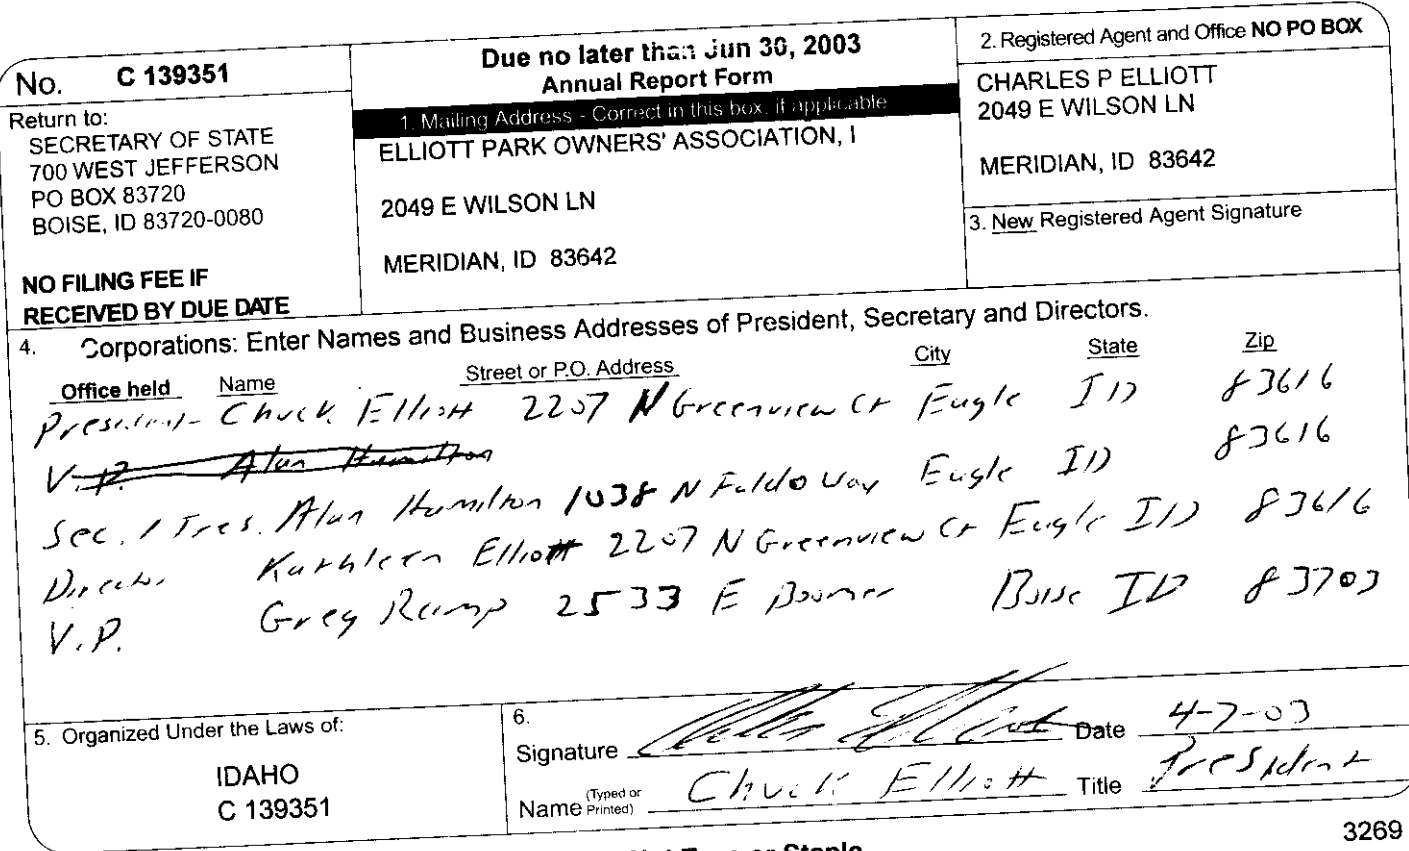 No. C 139351
Return to:
SECRETARY OF STATE
700 WEST JEFFERSON
PO BOX 83720
BOISE, ID 83720-0080
NO FILING FEE IF
RECEIVED BY DUE DATE
Due no later than Jun 30, 2003
Annual Report Form
1. Mailing Address - Correct in this box, if applicable
ELLIOTT PARK OWNERS' ASSOCIATION, I
2049 E WILSON LN
MERIDIAN, ID 83642
2. Registered Agent and Office NO PO BOX
CHARLES P ELLIOTT
2049 E WILSON LN
MERIDIAN, ID 83642
3. New Registered Agent Signature
4. Corporations: Enter Names and Business Addresses of President, Secretary and Directors.
Office held Name Street or P.O. Address City State Zip
President- Chuck Elliott 2207 N Greenview Ct Eagle ID 83616
V.P. Alan Hamilton
Sec. / Tres. Alan Hamilton 1038 N Faldo Way Eagle ID 83616
Director Kathleen Elliott 2207 N Greenview Ct Eagle ID 83616
V.P. Greg Ramp 2533 E Boumer Boise ID 83703
5. Organized Under the Laws of:
IDAHO
C 139351
6.
Signature Date 4-7-03
Name (Typed or Printed) Chuck Elliott Title President
or Staple
3269